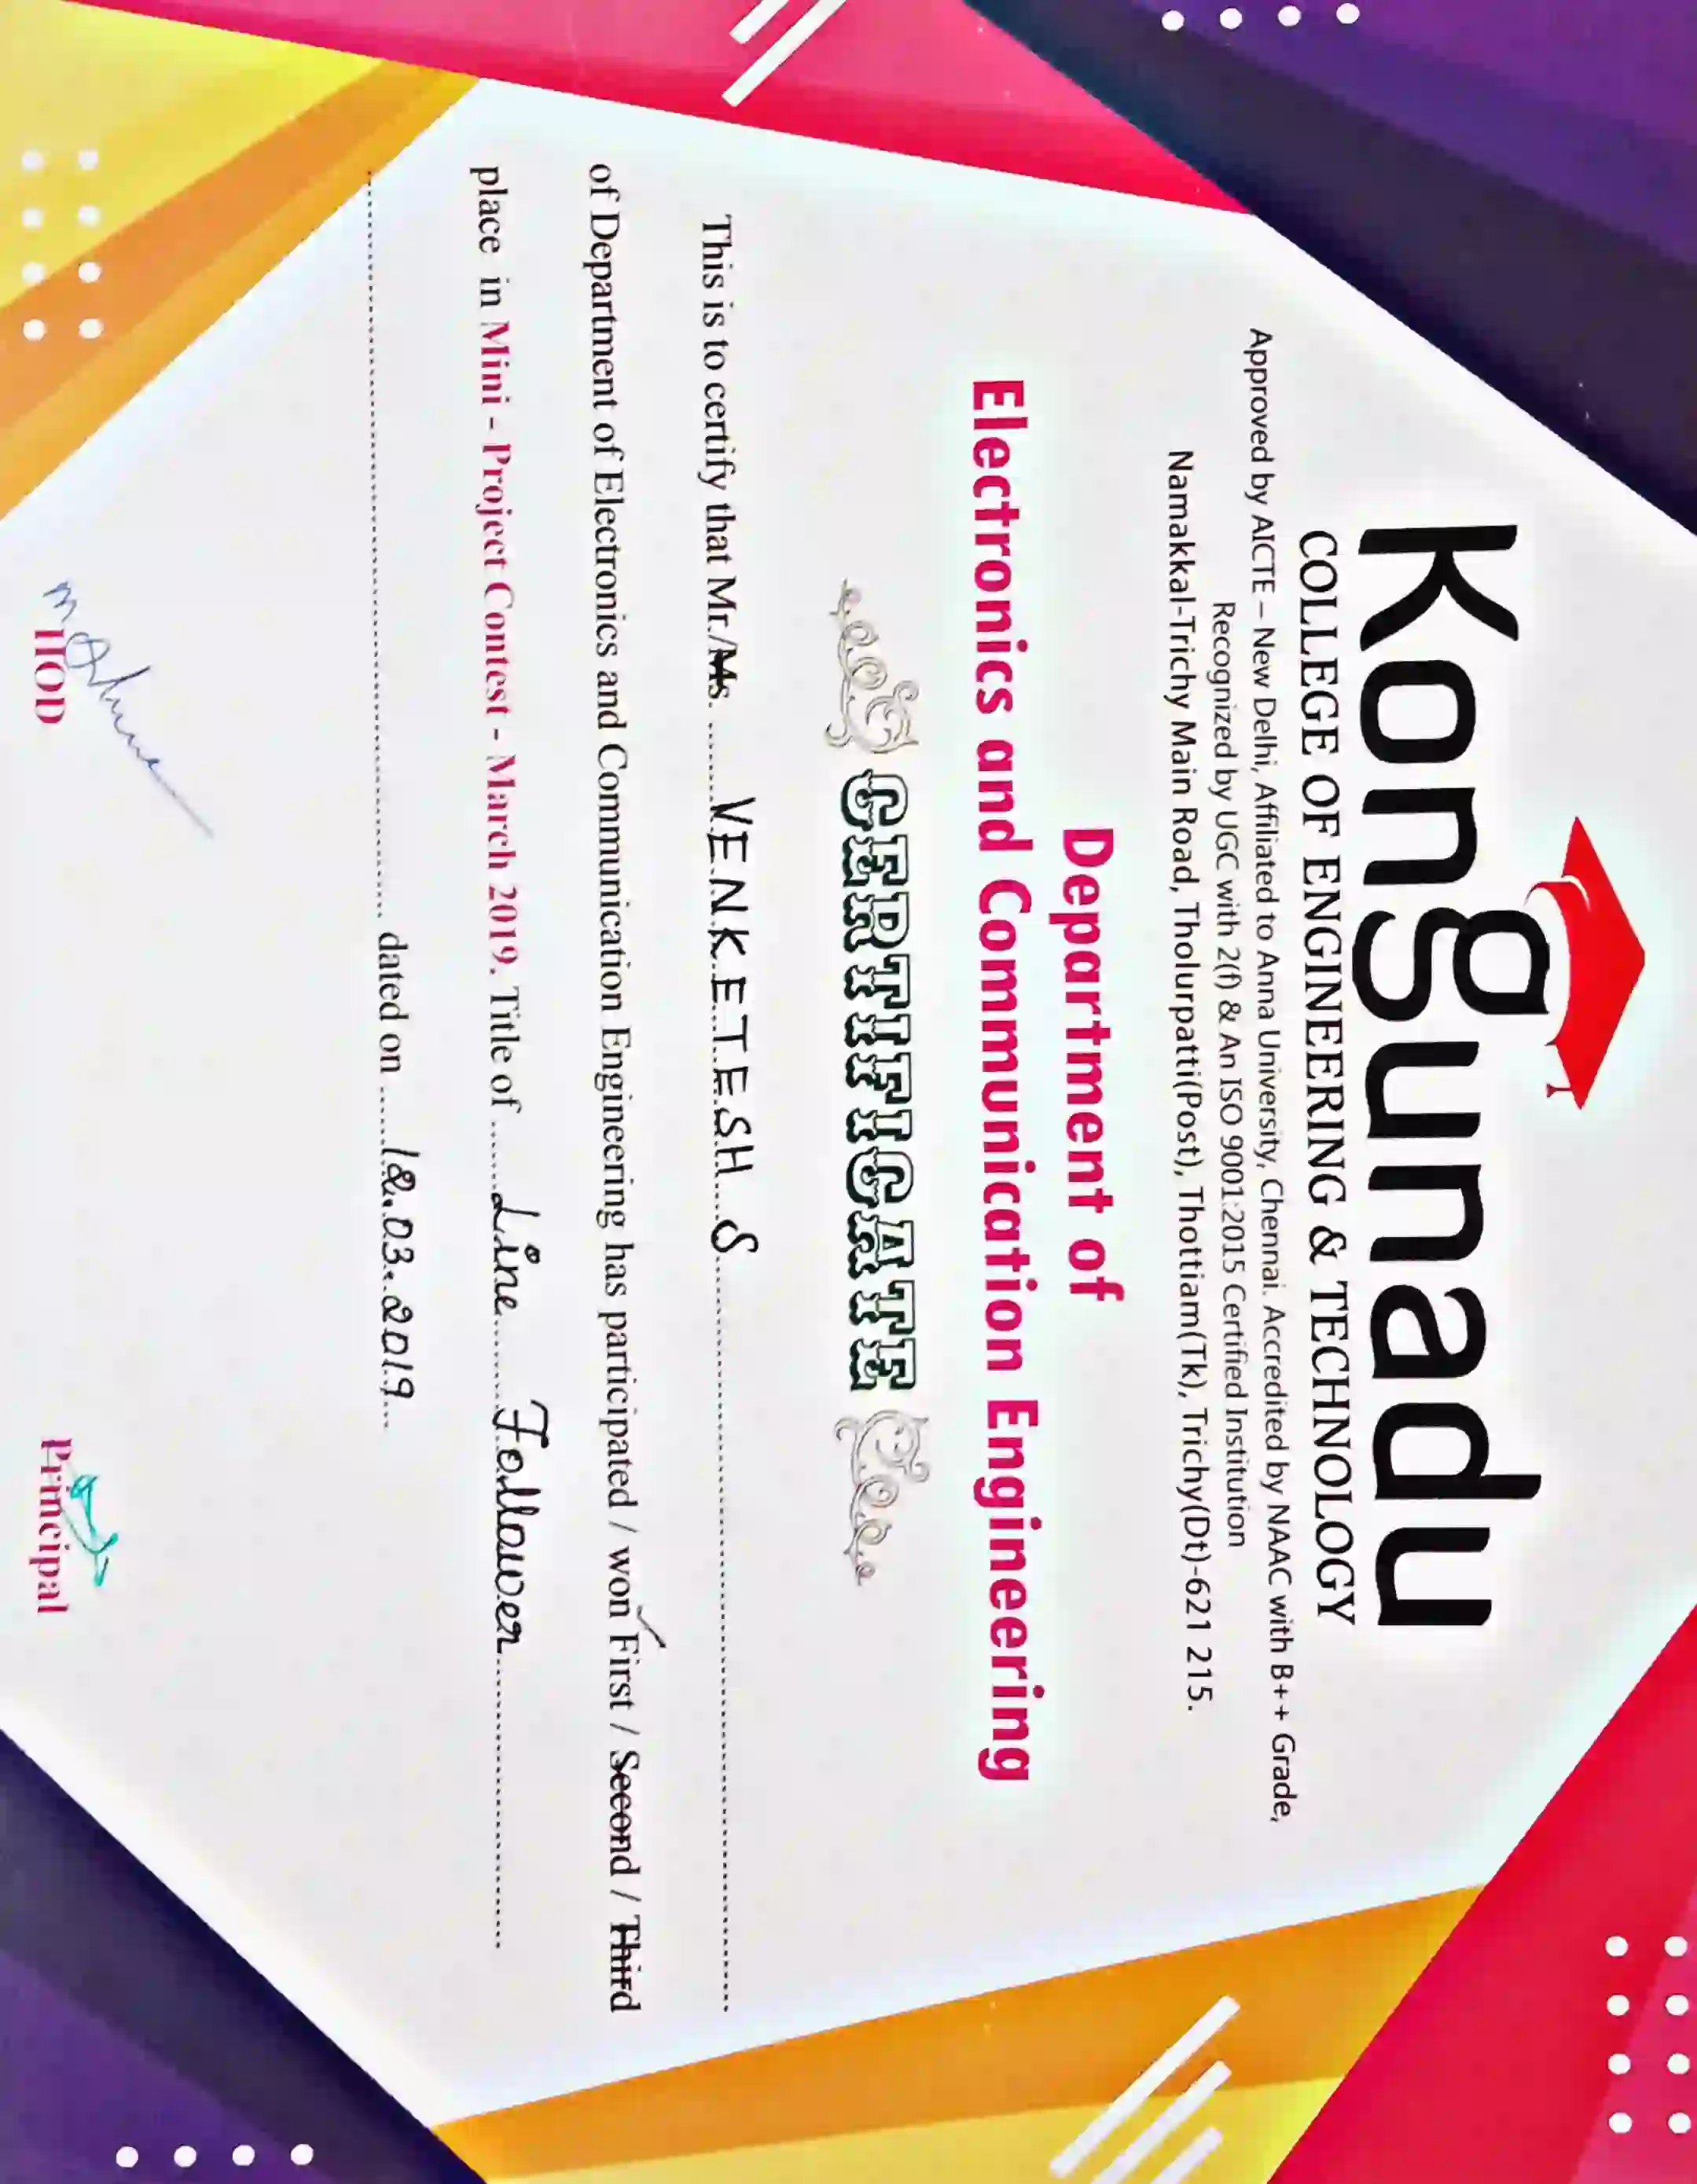 Kongunadu
COLLEGE OF ENGINEERING & TECHNOLOGY
Approved by AICTE – New Delhi, Affiliated to Anna University, Chennai. Accredited by NAAC with B++ Grade,
Recognized by UGC with 2(f) & An ISO 9001:2015 Certified Institution
Namakkal-Trichy Main Road, Tholurpatti(Post), Thottiam(Tk), Trichy(Dt)-621 215.
Department of
Electronics and Communication Engineering
CERTIFICATE
This is to certify that Mr./Ms. VENKETESH S
of Department of Electronics and Communication Engineering has participated / won First / Second / Third
place in Mini - Project Contest - March 2019. Title of Line Follower
dated on 18.03.2019
HOD Principal